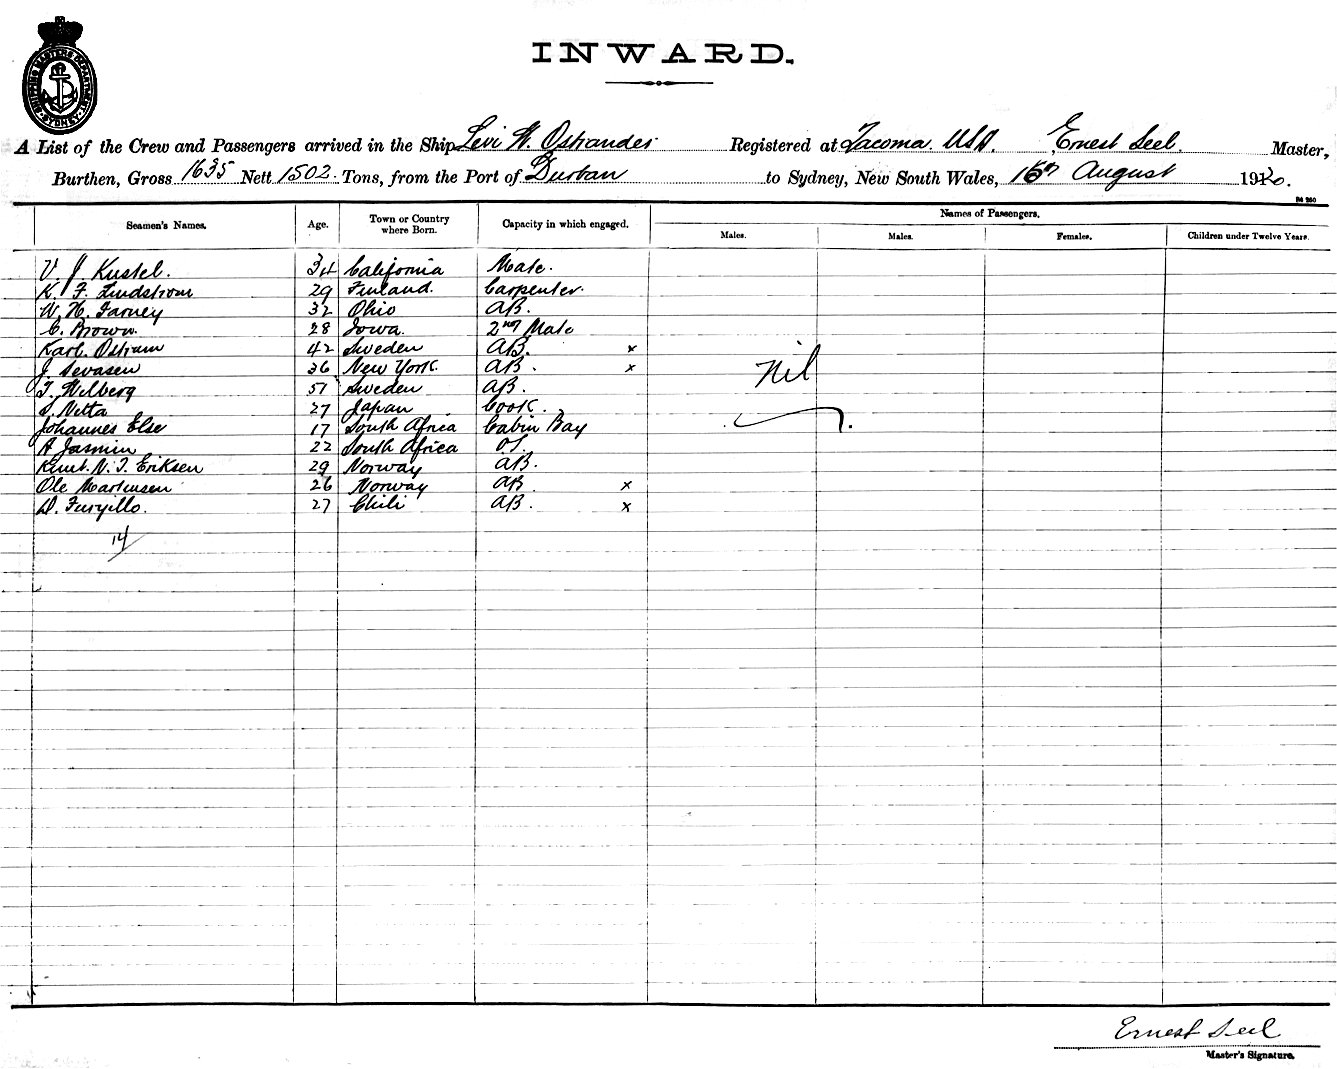 SHIPPING MASTERS DEPARTMENT SYDNEY
INWARD.
A List of the Crew and Passengers arrived in the Ship Levi W. Ostrander Registered at Tacoma USA. Ernest Seel. Master,
Burthen, Gross 1635 Nett 1502 Tons, from the Port of Durban to Sydney, New South Wales, 16th August 1920.
Seamen's Names. Age. Town or Country where Born. Capacity in which engaged. Names of Passengers.
Males. Males. Females. Children under Twelve Years.
V. J Kustel. 34 California Mate.
K. F. Lindstrom 29 Finland. Carpenter.
W. H. Farney 32 Ohio AB.
C. Brown. 28 Iowa. 2nd Mate
Karl. Ostram 42 Sweden AB. x
J. Sevasen 36 New York. AB. x
T. Wilberg 51 Sweden AB.
S. Netta 27 Japan Cook.
Johannes Else 17 South Africa Cabin Bay
A Jasmin 22 South Africa OS.
Knut. N. T. Eriksen 29 Norway AB.
Ole Martinsen 26 Norway AB x
D. Furyillo. 27 Chili AB. x
Nil
14
Ernest Seel
Master's Signature.